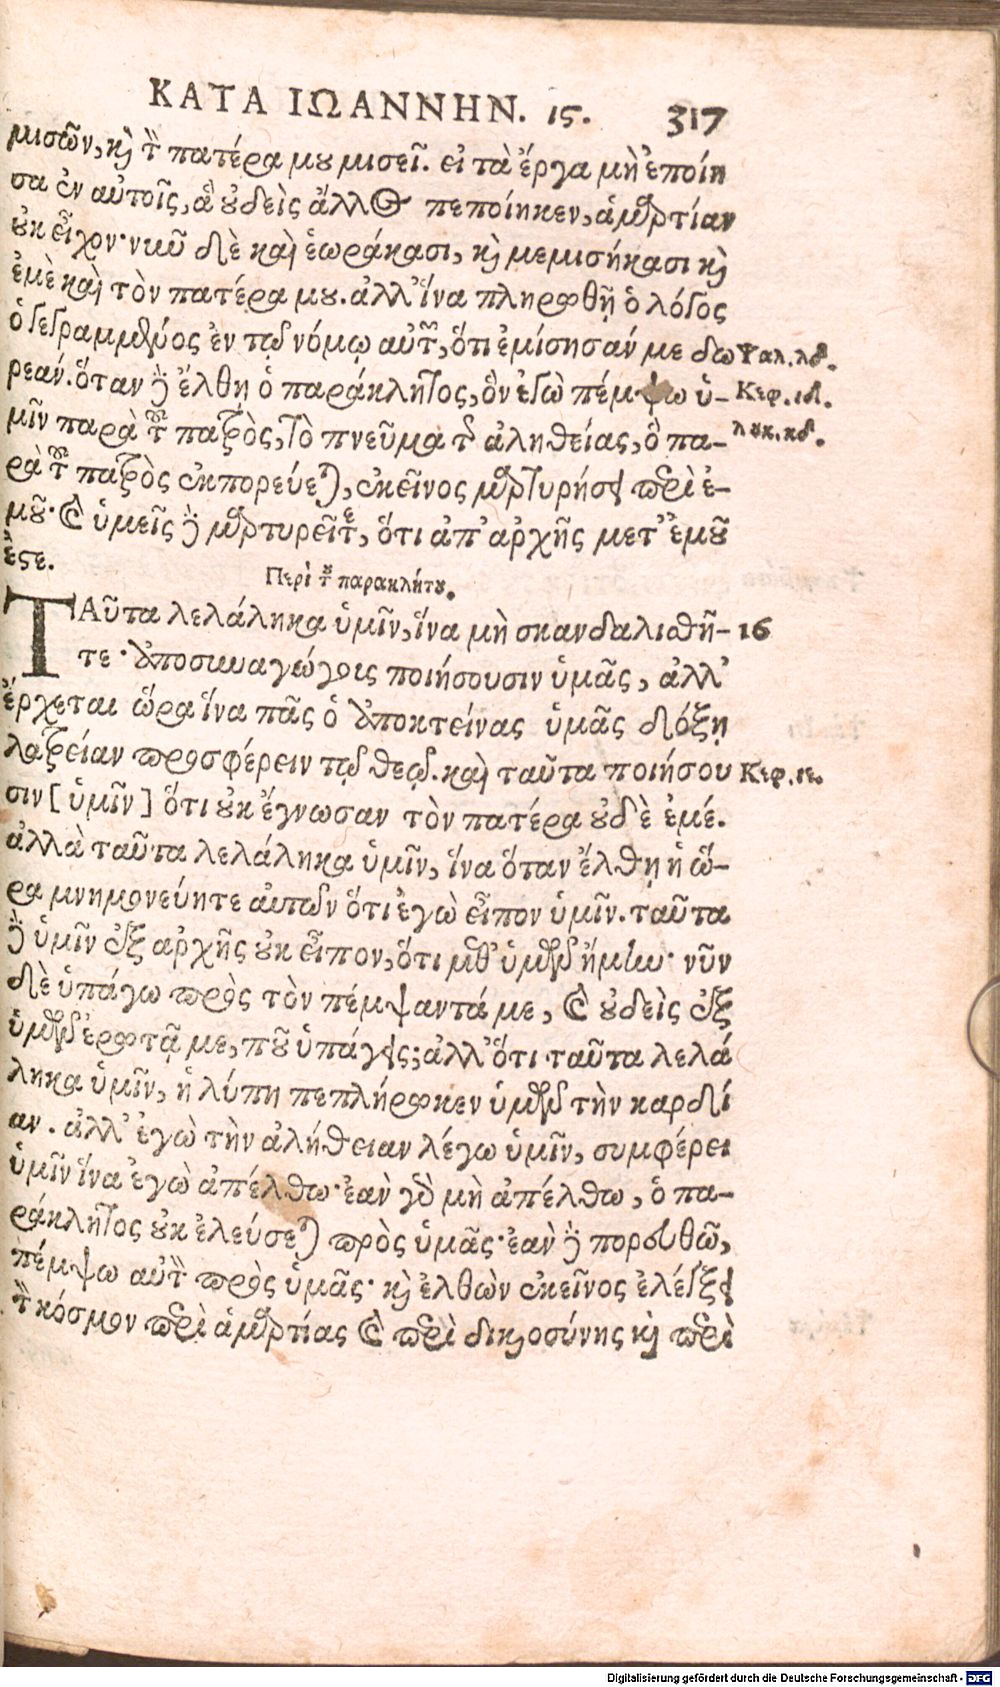 ΚΑΤΑ ΙΩΑΝΝΗΝ. 15. 317
μισῶν, καὶ τὸν πατέρα μου μισεῖ. εἰ τὰ ἔργα μὴ ἐποίη
σα ἐν αὐτοῖς, ἃ οὐδεὶς ἄλλος πεποίηκεν, ἁμαρτίαν
οὐκ εἶχον· νῦν δὲ καὶ ἑωράκασι, καὶ μεμισήκασι καὶ
ἐμὲ καὶ τὸν πατέρα μου. ἀλλ' ἵνα πληρωθῇ ὁ λόγος
ὁ γεγραμμένος ἐν τῷ νόμῳ αὐτῶν, ὅτι ἐμίσησάν με δω Ψαλ. λδ.
ρεάν. ὅταν δὲ ἔλθῃ ὁ παράκλητος, ὃν ἐγὼ πέμψω ὑ- Κεφ. ιδ.
μῖν παρὰ τοῦ πατρὸς, τὸ πνεῦμα τῆς ἀληθείας, ὃ πα- λουκ. κδ.
ρὰ τοῦ πατρὸς ἐκπορεύεται, ἐκεῖνος μαρτυρήσει περὶ ἐ-
μοῦ· καὶ ὑμεῖς δὲ μαρτυρεῖτε, ὅτι ἀπ' ἀρχῆς μετ' ἐμοῦ
ἔστε.
Περὶ τοῦ παρακλήτου.
ΤΑῦτα λελάληκα ὑμῖν, ἵνα μὴ σκανδαλισθῆ- 16
τε· ἀποσυναγώγους ποιήσουσιν ὑμᾶς, ἀλλ'
ἔρχεται ὥρα ἵνα πᾶς ὁ ἀποκτείνας ὑμᾶς δόξῃ
λατρείαν προσφέρειν τῷ θεῷ. καὶ ταῦτα ποιήσου Κεφ. ιε.
σιν [ὑμῖν] ὅτι οὐκ ἔγνωσαν τὸν πατέρα οὐδὲ ἐμέ.
ἀλλὰ ταῦτα λελάληκα ὑμῖν, ἵνα ὅταν ἔλθῃ ἡ ὥ-
ρα μνημονεύητε αὐτῶν ὅτι ἐγὼ εἶπον ὑμῖν. ταῦτα
δὲ ὑμῖν ἐξ ἀρχῆς οὐκ εἶπον, ὅτι μεθ' ὑμῶν ἤμην· νῦν
δὲ ὑπάγω πρὸς τὸν πέμψαντά με, καὶ οὐδεὶς ἐξ
ὑμῶν ἐρωτᾷ με, ποῦ ὑπάγεις; ἀλλ' ὅτι ταῦτα λελά
ληκα ὑμῖν, ἡ λύπη πεπλήρωκεν ὑμῶν τὴν καρδί
αν. ἀλλ' ἐγὼ τὴν ἀλήθειαν λέγω ὑμῖν, συμφέρει
ὑμῖν ἵνα ἐγὼ ἀπέλθω· ἐὰν γὰρ μὴ ἀπέλθω, ὁ πα-
ράκλητος οὐκ ἐλεύσεται πρὸς ὑμᾶς· ἐὰν δὲ πορευθῶ,
πέμψω αὐτὸν πρὸς ὑμᾶς· καὶ ἐλθὼν ἐκεῖνος ἐλέγξει
τὸν κόσμον περὶ ἁμαρτίας καὶ περὶ δικαιοσύνης καὶ περὶ
Digitalisierung gefördert durch die Deutsche Forschungsgemeinschaft - DFG